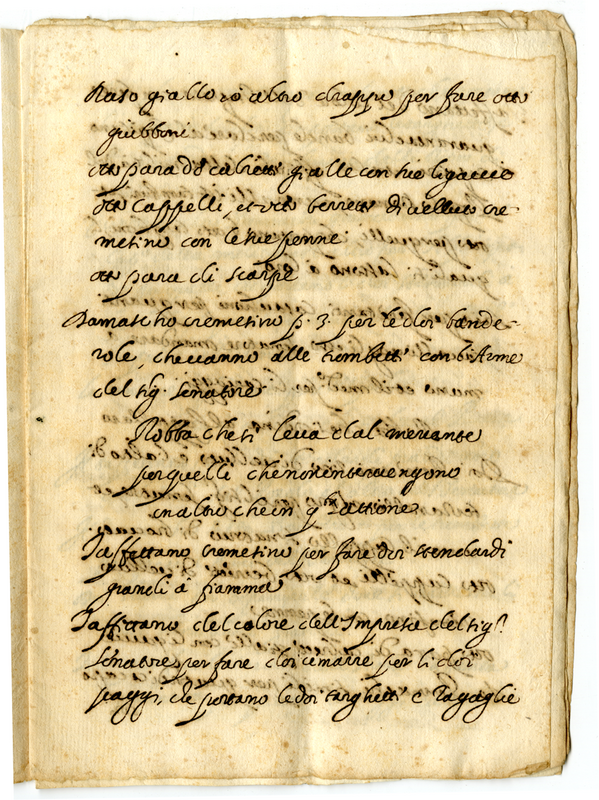 Raso giallo o altro drappo per fare otto
giubboni
otto para di calzette gialle con sue ligaccie
otto cappelli, et otto berrette di velluto cre-
metino con le sue penne
otto para di scarpe
Damascho cremetino p. 3. per le doi bande-
role, che vanno alle trombette con l'Arme
del sig. senatore
Robba che si leva dal mercante
per quelli che non intervengono
in altro, che in q.ta attione.
Taffettano cremetino per fare doi stendardi
grandi à fiamma
Taffettano del colore dell'Impresa del sig.r
senatore per fare doi cimarre per li doi
paggi, che portano le doi targhette e Zagaglie